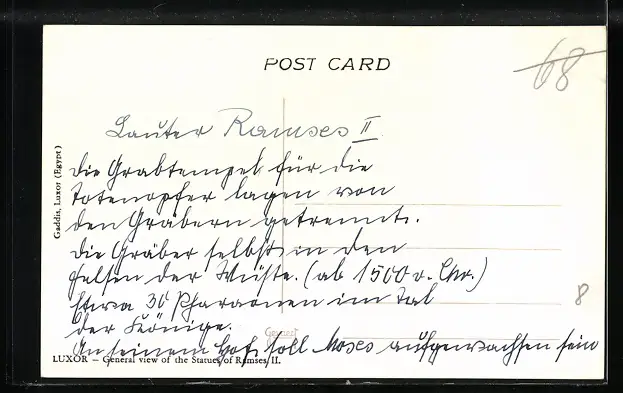 POST CARD
68
Lauter Ramses II.
die Grabtempel für die
Totenopfer lagen von
den Gräbern getrennt.
die Gräber selbst in den
Felsen der Wüste. (ab 1500 v. Chr.)
Etwa 30 Pharaonen im Tal
der Könige.
An seinem Hof soll Moses aufgewachsen sein
Gaddis, Luxor (Egypt)
8
LUXOR — General view of the Statues of Ramses II.